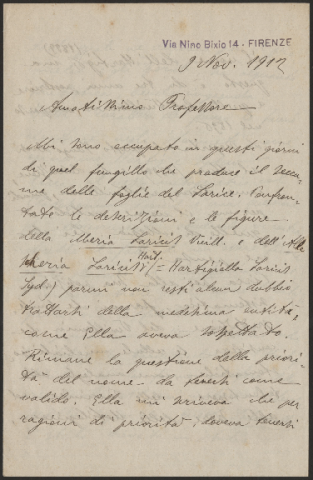 Via Nino Bixio 14 - FIRENZE
9 Nov. 1912
Amatissimo Professore
Mi sono occupato in questi giorni
di quel funghillo che produce il secca-
me delle foglie del Larice. Confron-
tate le descrizioni e le figure
della Meria Laricis Vuill. e dell'Alle-
scheria Laricis Hart. (= Hartigiella Laricis
Syd.) parmi non resti alcun dubbio
trattarsi della medesima entità,
come Ella aveva sospettato.
Rimane la questione della priori-
tà del nome da tenersi come
valido. Ella mi scriveva che per
ragioni di priorità, doveva tenersi